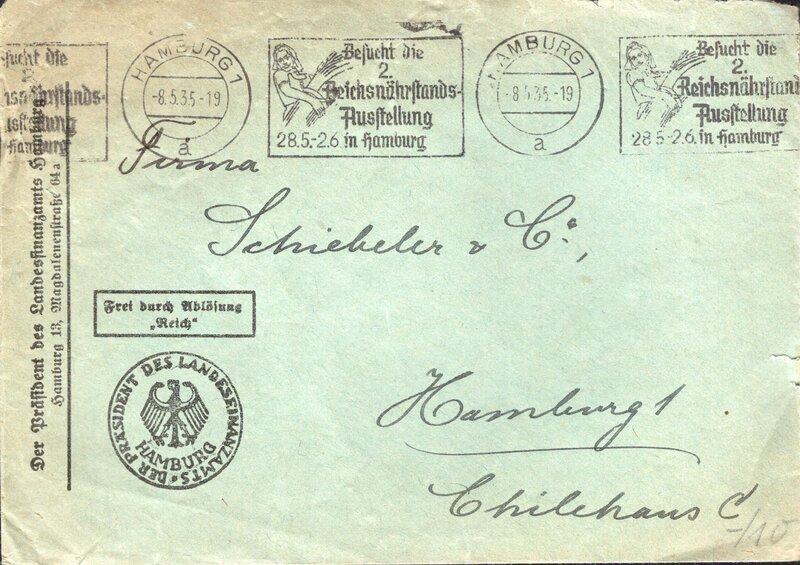 sucht die
Hamburg
HAMBURG 1
-8.5.35.-19
a
Besucht die
2.
Reichsnährstands-
Ausstellung
28.5.-2.6. in Hamburg
HAMBURG 1
-8.5.35.-19
a
Besucht die
2.
Reichsnährstand
Ausstellung
28.5.-2.6. in Hamburg
Firma
Schiebeler & Co.,
Hamburg 1
Chilehaus C
-/10
Frei durch Ablösung
„Reich“
DER PRÄSIDENT DES LANDESFINANZAMTS
HAMBURG
Der Präsident des Landesfinanzamts Hamburg
Hamburg 13, Magdalenenstraße 64 a